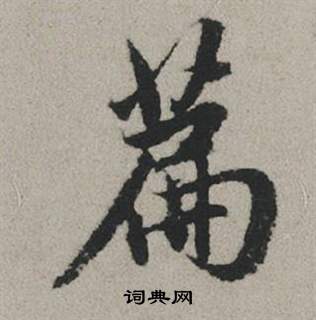 篇
词典网